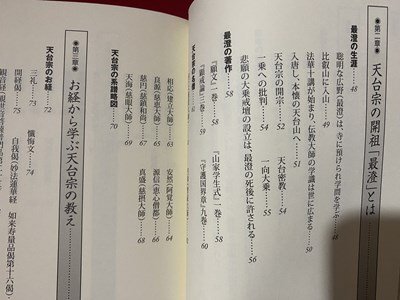 第二章
天台宗の開祖「最澄」とは
最澄の生涯……48
聡明な広野（最澄）は、寺に預けられ学問を学ぶ……48
比叡山に入山……49
法華十講が始まり、伝教大師の学識は世に広まる……50
入唐し、本懐の天台山へ……51
天台宗の開宗……52
天台密教……54
一乗への批判……54
一向大乗……55
悲願の大乗戒壇の設立は、最澄の死後に許される……56
最澄の著作……58
『願文』一巻……58
『山家学生式』一巻……58
『顕戒論』三巻……59
『守護国界章』九巻……60
相応（建立大師）……63
安然（阿覚大師）……64
良源（慈恵大師）……65
源信（恵心僧都）……66
慈円（慈鎮和尚）……67
真盛（慈摂大師）……68
天海（慈眼大師）……69
天台宗の系譜略図……70
第三章
お経から学ぶ天台宗の教え
天台宗のお経……72
三礼……73
懺悔文……74
開経偈……75
自我偈（妙法蓮華経 如来寿量品偈第十六偈）